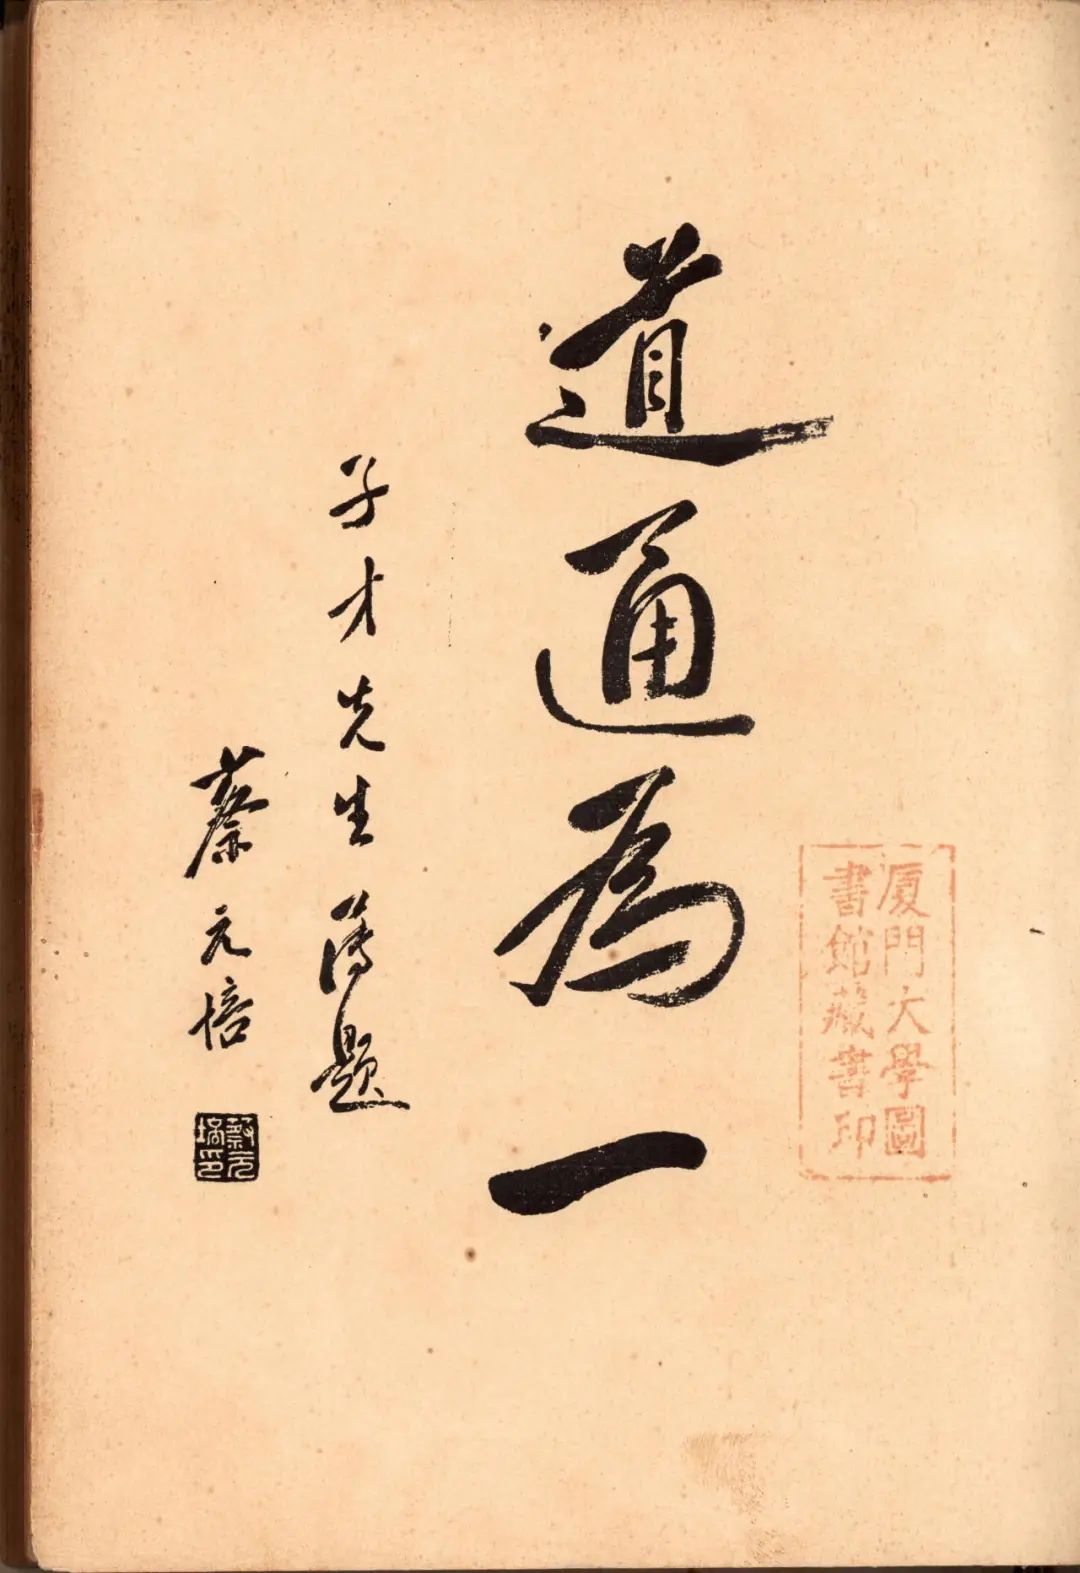 厦門大學圖
書館藏書印
道通為一
子才先生題
蔡元培
蔡元
培印